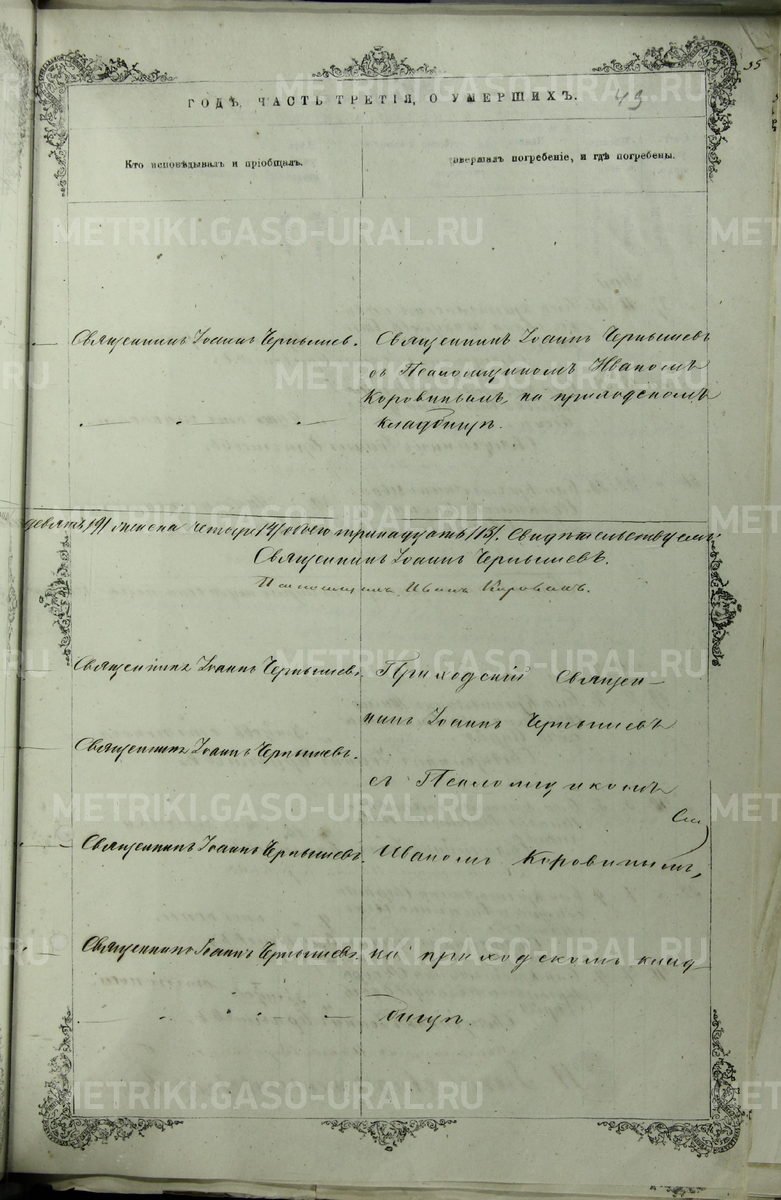 35
ГОДЪ, ЧАСТЬ ТРЕТІЯ, О УМЕРШИХЪ. 49
Кто исповѣдывалъ и пріобщалъ.
овершалъ погребеніе, и гдѣ погребены.
Священникъ Іоаннъ Чернышевъ.
Священникъ Іоаннъ Чернышевъ
съ Псаломщикомъ Иваномъ
Коровинымъ, на приходскомъ
кладбищѣ.
девять /9/ женска четыре /4/ обоего тринадцать /13/. Свидѣтельствуемъ:
Священникъ Іоаннъ Чернышевъ.
Псаломщикъ Иванъ Коровинъ.
Священникъ Іоаннъ Чернышевъ.
Приходскій Священ-
никъ Іоаннъ Чернышевъ
Священникъ Іоаннъ Чернышевъ.
съ Псаломщикомъ
Священникъ Іоаннъ Чернышевъ.
Иваномъ Коровинымъ,
Священникъ Іоаннъ Чернышевъ.
на приходскомъ клад-
бищѣ.
METRIKI.GASO-URAL.RU